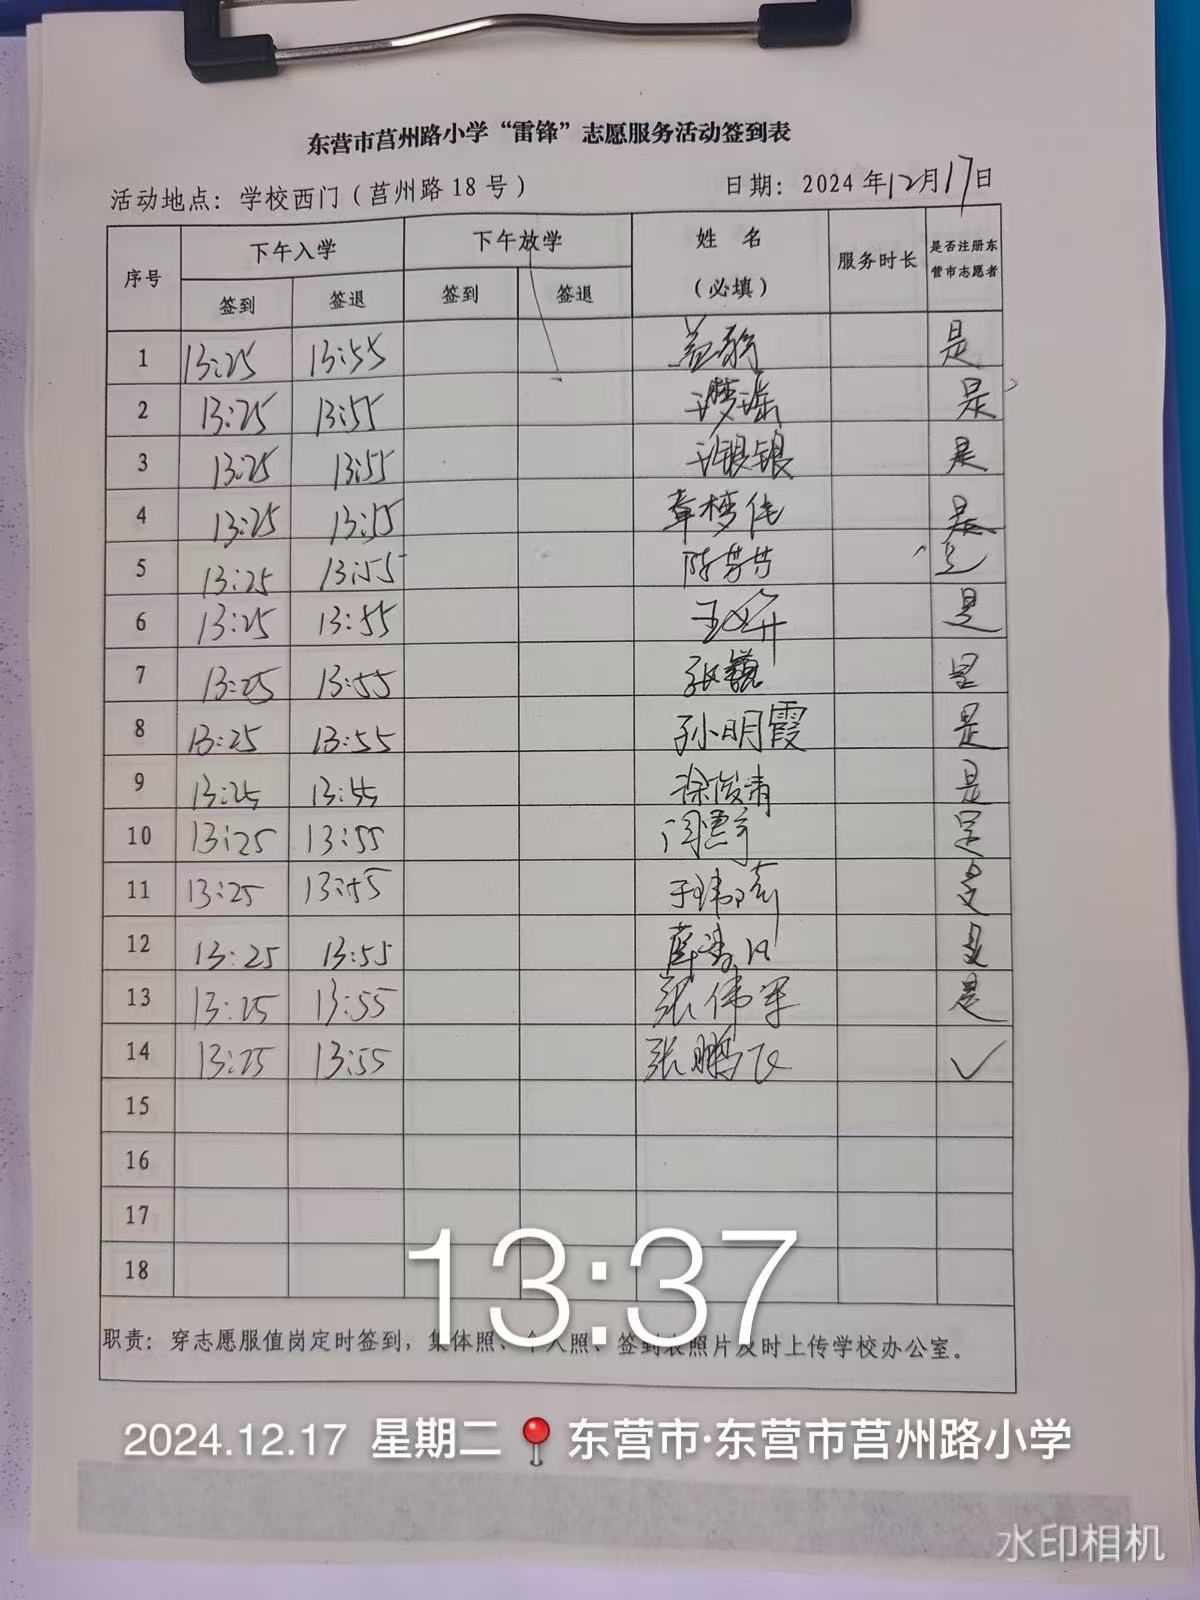 东营市莒州路小学“雷锋”志愿服务活动签到表
活动地点：学校西门（莒州路18号） 日期：2024年12月17日
序号 下午入学 下午放学 姓名（必填） 服务时长 是否注册东营市志愿者
签到 签退 签到 签退
1 13:25 13:55 是
2 13:25 13:55 梦瑶 是
3 13:25 13:55 银银 是
4 13:25 13:55 章梦佳 是
5 13:25 13:55 陈芳芳 是
6 13:25 13:55 王 是
7 13:25 13:55 张 是
8 13:25 13:55 孙明霞 是
9 13:25 13:55 徐俊青 是
10 13:25 13:55 闫 是
11 13:25 13:55 于 是
12 13:25 13:55 薛 是
13 13:25 13:55 张伟军 是
14 13:25 13:55 张鹏飞 ✓
15
16
17
18
职责：穿志愿服值岗定时签到，集体照、个人照、签到表照片及时上传学校办公室。
13:37
2024.12.17 星期二 东营市·东营市莒州路小学
水印相机